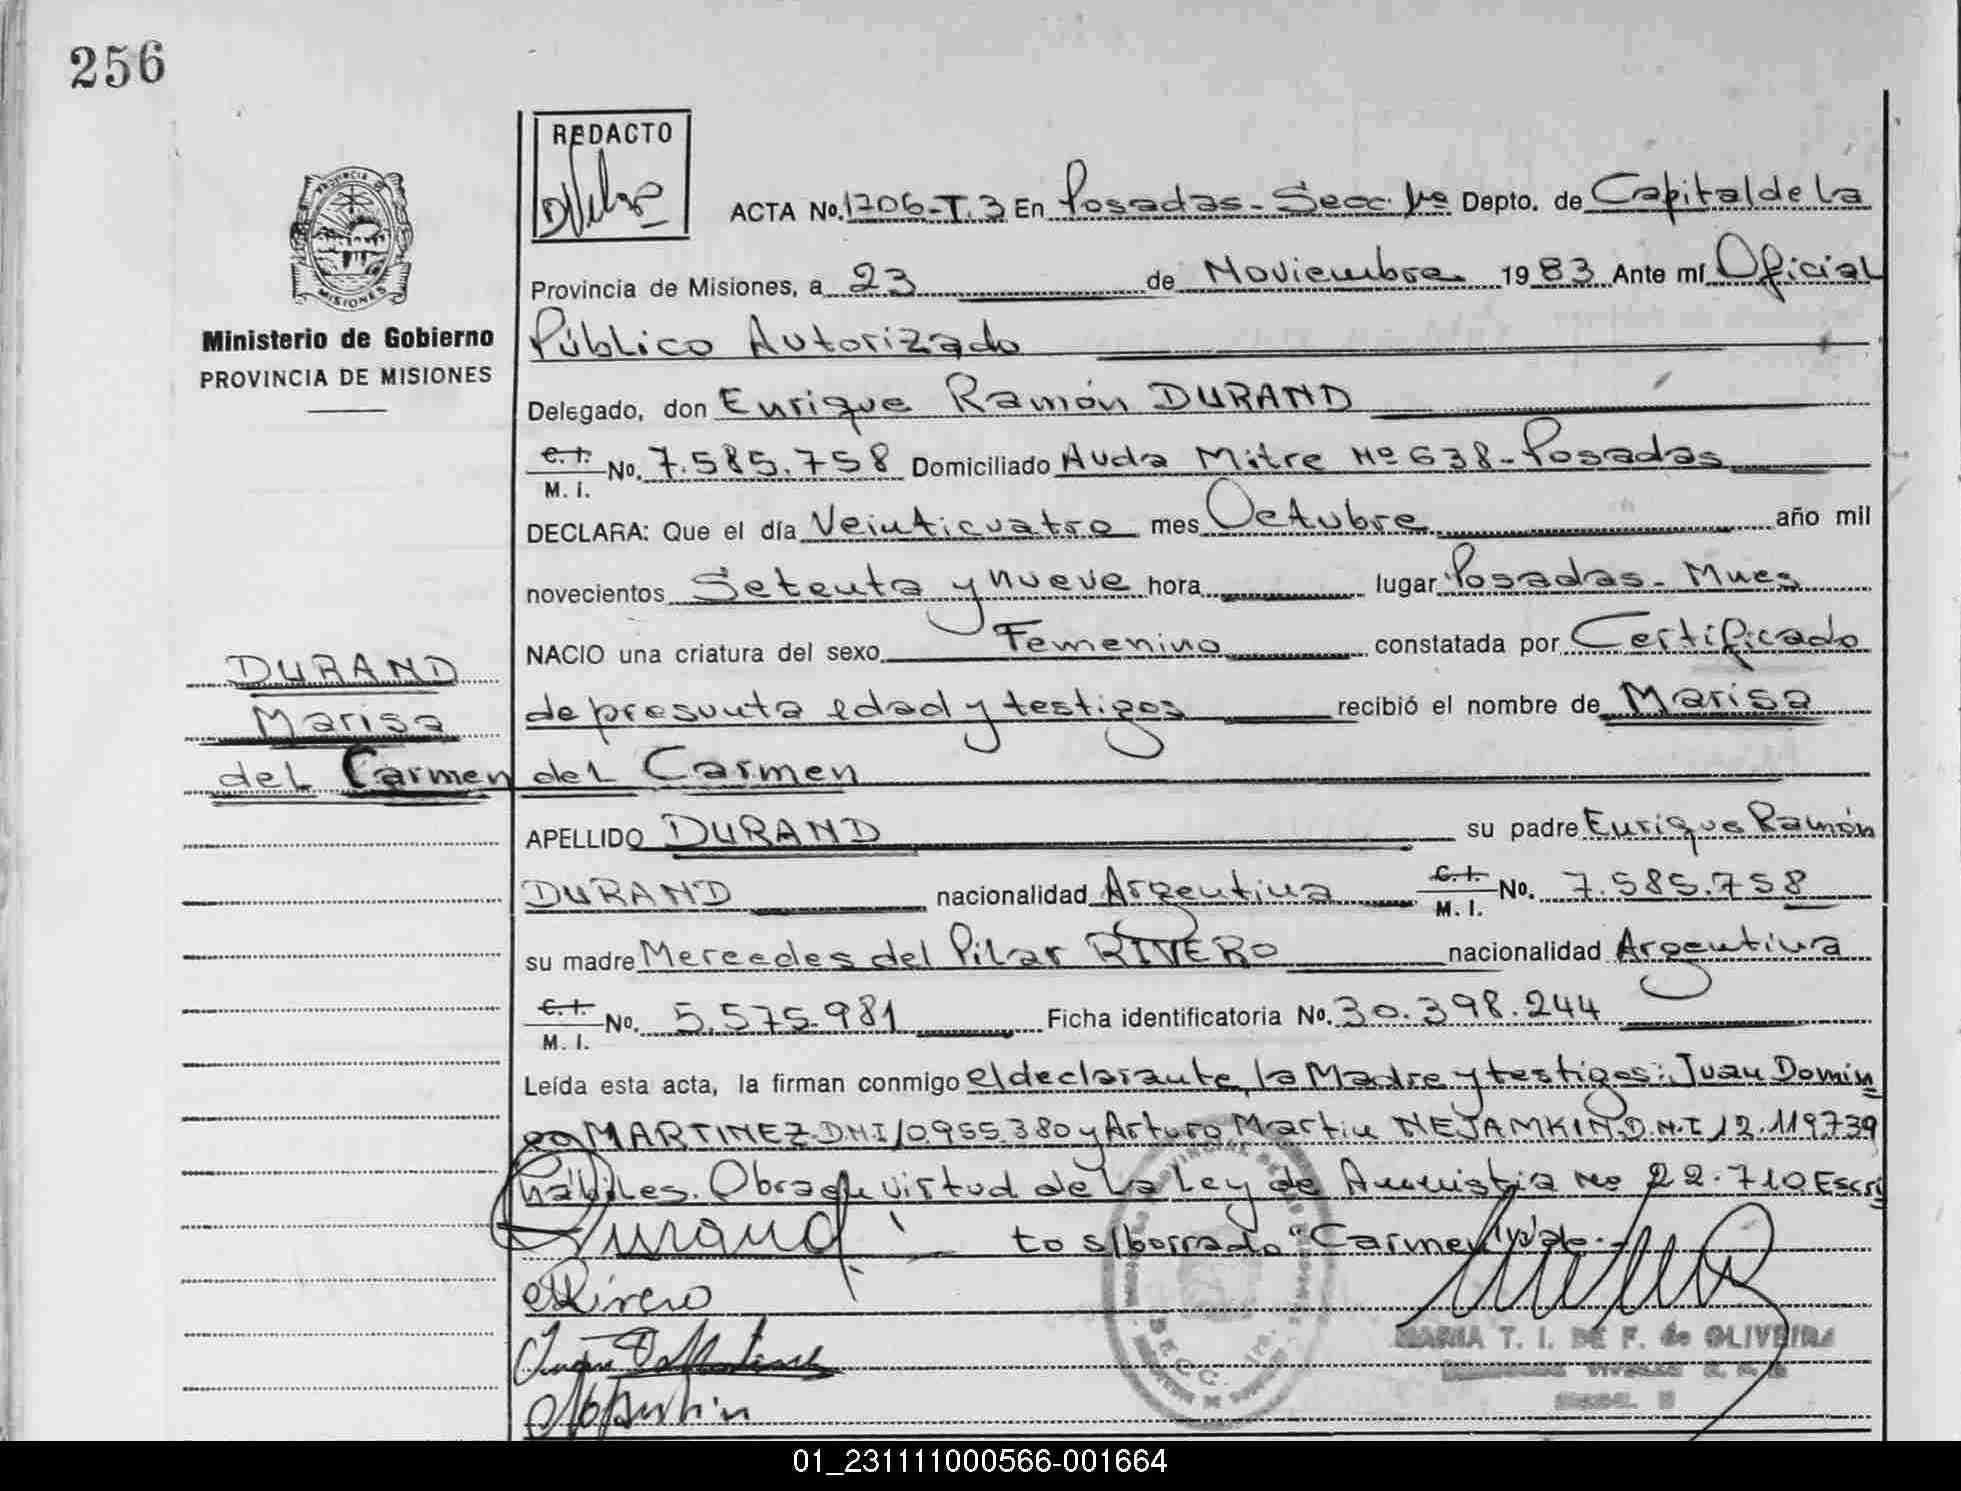 256
REDACTO
ACTA No. 1706-T.3 En Posadas-Secc. 1ª Depto. de Capital de la
PROVINCIA DE
MISIONES
Provincia de Misiones, a 23 de Noviembre 1983 Ante mí Oficial
Ministerio de Gobierno
PROVINCIA DE MISIONES
Público Autorizado
Delegado, don Enrique Ramón DURAND
C.I. M.I. No. 7.585.758 Domiciliado Avda Mitre Nº 638-Posadas
DECLARA: Que el día Veinticuatro mes Octubre año mil
novecientos Setenta y nueve hora lugar Posadas-Mnes
NACIO una criatura del sexo Femenino constatada por Certificado
DURAND
Marisa
del Carmen
de presunta edad y testigos recibió el nombre de Marisa
del Carmen
APELLIDO DURAND su padre Enrique Ramón
DURAND nacionalidad Argentina C.I. M.I. No. 7.585.758
su madre Mercedes del Pilar RIVERO nacionalidad Argentina
C.I. M.I. No. 5.575.981 Ficha identificatoria No. 30.398.244
Leída esta acta, la firman conmigo el declarante, la Madre y testigos: Juan Domin
go MARTINEZ D.N.I 10.955.380 y Arturo Martin NEJAMKIN D.N.I 12.119739
hábiles. Obra en virtud de la Ley de Amnistia No 22.710 Escri
to s/borrado "Carmen" vale.-
Durand
Rivero
MARIA T. I. DE F. de OLIVEIRA
SECC. 1ra.
01_231111000566-001664